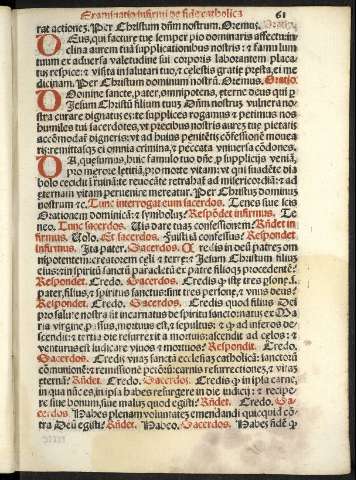 Examinatio infirmi de fide catholica 61
rat actiones. Per Christum dñm nostrum. Oremus. Oratio.
DEus, qui facture tue semper pio dominaris affectu: in
clina aurem tuã supplicationibus nostris: et famulum
tuum ex aduersa valetudine sui corporis laborantem placa
tus respice: et visita in salutari tuo, et celestis gratie presta, ei me
dicinam. Per Christum dominum nostrũ. Oremus. Oratio.
DOmine sancte, pater, omnipotens, eterne deus qui p
Jesum Christũ filium tuuz Dñm nostruz vulnera no
stra curare dignatus es: te supplices rogamus et petimus nos
humiles tui sacerdotes, vt precibus nostris aures tue pietatis
accõmodare digneris: vt ad huius penitẽtis cõfessionẽ moue a
ris: remittasqz ei omnia crimina, et peccata vniuersa cõdones.
DA, quesumus, huic famulo tuo dñe, p supplicijs veniã,
pro merore letitiã, pro morte vitam: vt qui suadẽte dia
bolo cecidit i ruinã: te reuocãte retrahat ad misericordiã: et ad
eternam vitam peruenire mereatur. Per Christuz dominuz
nostrum etc. Tunc interrogat eum sacerdos. Tenes siue scis
Orationem dominicã: et symboluz? Respõdet infirmus. Te
neo. Tunc sacerdos. Uis dare tuam confessionem? Rñdet in
firmus. Uolo. Et sacerdos. Fuisti ad confessus? Respondet
infirmus. Ita pater. Sacerdos. Credis in deũ patrez om
nipotentem: creatorem celi et terre: et Jesum Christum filium
eius: in spiritũ sanctũ paracletũ ex patre filioqz procedentẽ?
Respondet. Credo. Sacerdos. Credis q iste tres psone, s.
pater, filius, et spiritus sanctus sint tres persone, et vnus deus?
Respondet. Credo. Sacerdos. Credis quod filius Dei
pro salute nostra sit incarnatus de spiritu sancto: natus ex Ma
ria virgine, passus, mortuus est, et sepultus: et q ad inferos de
scendit: et tertia die resurrexit a mortuis: ascendit ad celos: et
venturus est iudicare viuos et mortuos? Respondit. Credo.
Sacerdos. Credis vnaz sanctã ecclesiaz catholicã: sanctorũ
cõmunionẽ: et remissionẽ pctõrũ: carnis resurrectionez, et vitaz
eternã? Rñdet. Credo. Sacerdos. Credis q in ipsa carne,
in qua nũc es, in ipsa habes resurgere in die iudicij: et recipe
re siue bonum, siue malũ quod egisti? Rñdet. Credo. Sa
cerdos. Habes plenam voluntatez emendandi quicquid cõ
tra Deũ egisti? Rñdet. Habeo. Sacerdos. Habes fidẽ q